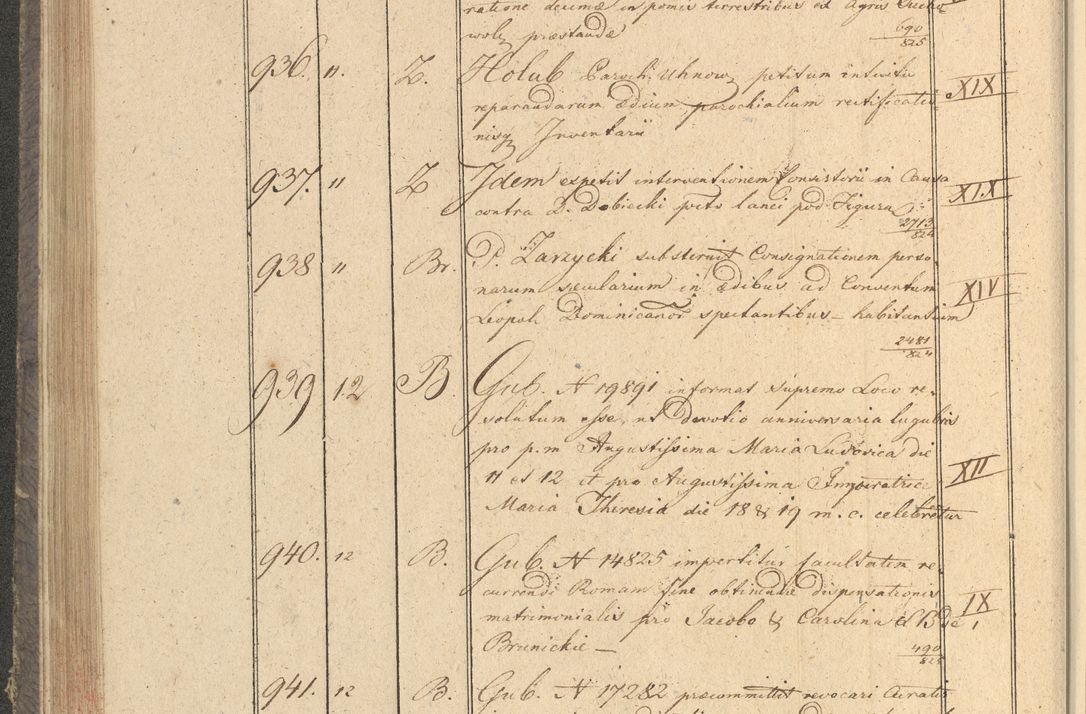 ratione decimæ in pomis terrestribus ex Agris
wolę præstandæ 690/825
936. 11. Z. Holub Paroch. Uhnow. petitum intuitu
reparandarum ædium parochialium rectificati XIX
nisq Inventarii
937. 11 Z Idem expetit interventionem Consistorii in Causa
contra D. Dobiecki pcto lanei pod Figura XIX
2713/824
938 11 Br. P. Zarzycki substernit Consignationem perso-
narum sæcularium in ædibus ad Conventum XIV
Leopol. Dominicanor spectantibus habitantium
2481/824
939 12 B. Gub. N 19891 informat Supremo Loco re-
solutum esse, ut devotio anniversaria lugubris
pro p.m Augustissima Maria Ludovica die
11 et 12 et pro Augustissima Imperatrice XII
Maria Theresia die 18 & 19 m. c. celebretur
940. 12 B. Gub. N 14825 impertitur facultatem re-
currendi Romam fine obtinendæ dispensationis
matrimonialis pro Jacobo & Carolina de IX
Brunickie — 490/825
941. 12 B. Gub. N 17282 præcommittit revocari